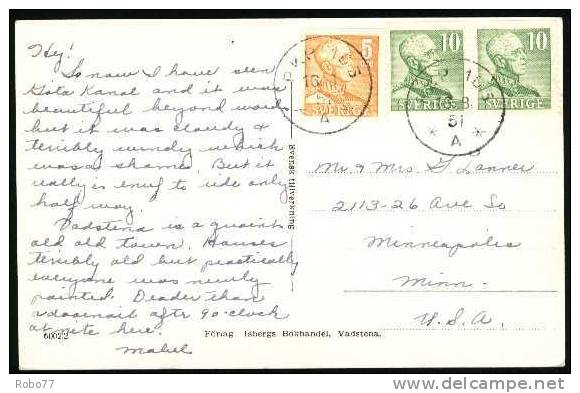 Hey!
So now I have seen
Gota Kanal and it was
beautiful beyond words
but it was cloudy &
terribly windy which
was a shame. But it
really is enuf to ride only
half way.
Vadstena is a quaint
old old town. Houses
terribly old but practically
everyone was newly
painted. Deader than
a doornail aftr 9 o'clock
at nite here.
Mabel
60022
Svensk tillverkning
Förlag. Isbergs Bokhandel, Vadstena.
5
10
10
SVERIGE
SVERIGE
PKP
A
51
* *
A
Mr & Mrs G Lanner
2113-26 Ave So
Minneapolis
Minn.
U.S.A.
Robo77
www.delcampe.net